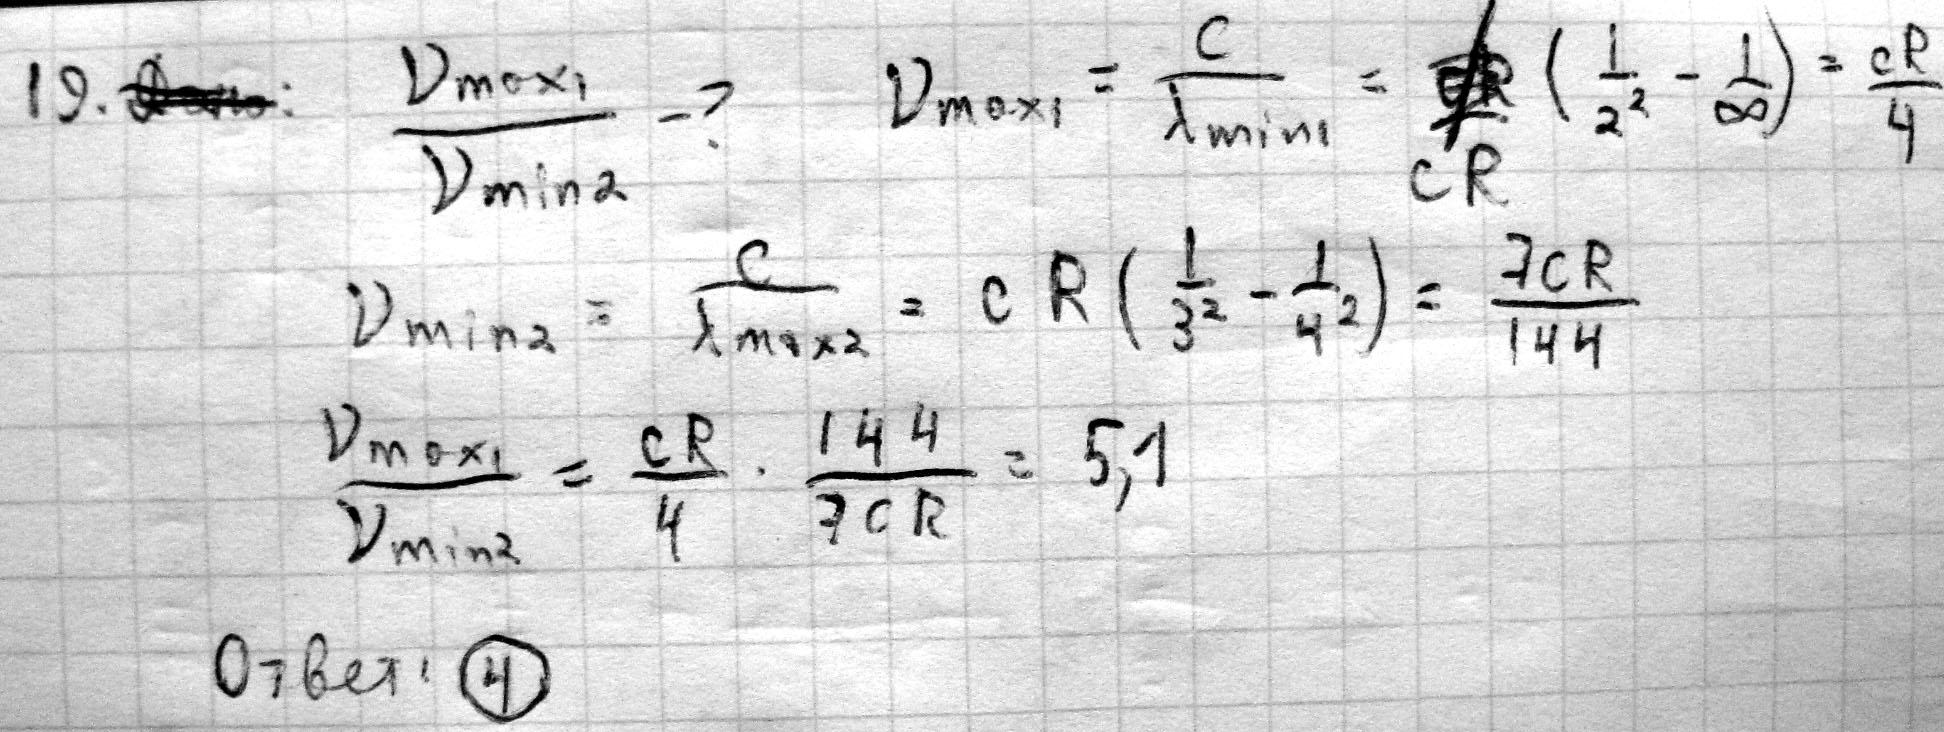 19. ν max1 / ν min2 - ? ν max1 = c / λ min1 = cR (1/2² - 1/∞) = cR/4
ν min2 = c / λ max2 = cR (1/3² - 1/4²) = 7cR/144
ν max1 / ν min2 = cR/4 · 144/7cR = 5,1
Ответ: 4